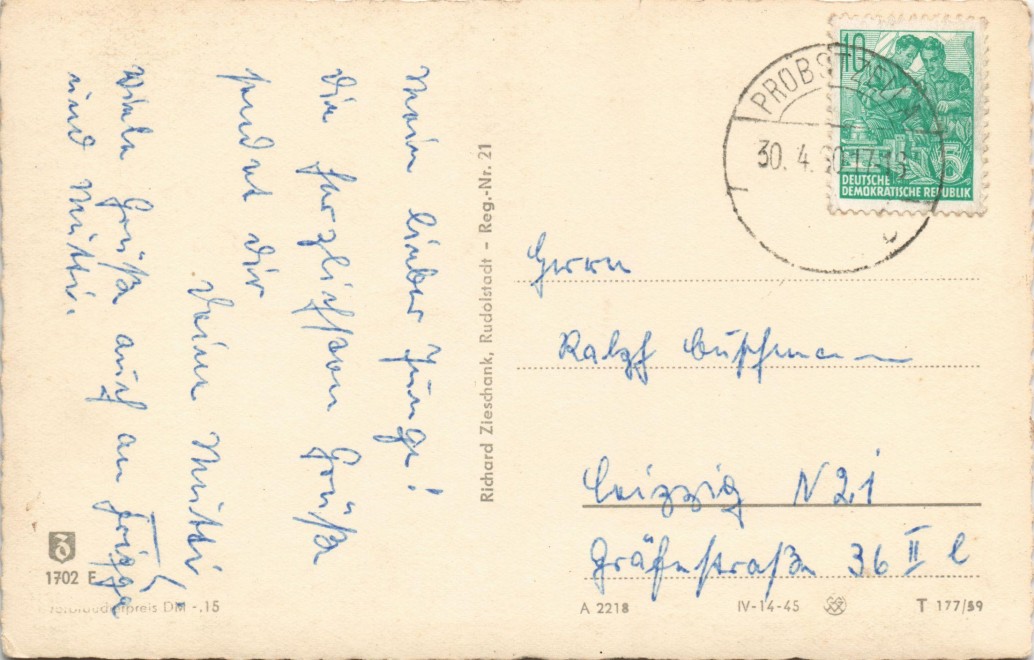 Mein lieber Junge!
Die herzlichsten Grüße
sendet dir
Deine Mutti,
Viele Grüße auch an
und Mutti.
Richard Zieschank, Rudolstadt – Reg.-Nr. 21
1702 E
Verbraucherpreis DM -.15
10
DEUTSCHE
DEMOKRATISCHE REPUBLIK
PROBSTZELLA
30. 4. 60-17-18
Herrn
Ralph Buschmann
Leipzig N 21
Gräfestraße 36 II l
A 2218
IV-14-45
T 177/59